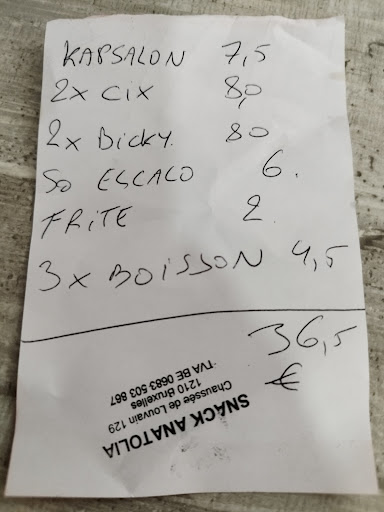 KAPSALON 7,5
2x CIX 8,0
2x BICKY. 80
SO ESCALO 6.
FRITE 2.
3x BOISSON 4,5
36,5
€
SNACK ANATOLIA
Chaussée de Louvain 129
1210 Bruxelles
TVA BE 0683 503 867